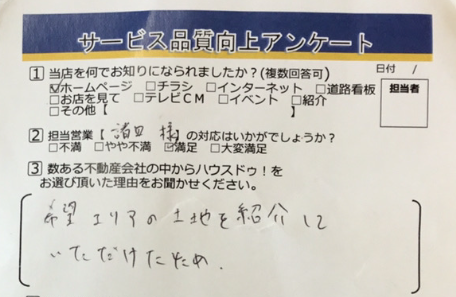 サービス品質向上アンケート
日付　/
1 当店を何でお知りになられましたか？(複数回答可)
☑ホームページ　□チラシ　□インターネット　□道路看板
□お店を見て　□テレビCM　□イベント　□紹介
□その他【　】
担当者
2 担当営業【 諸田 様 】の対応はいかがでしょうか？
□不満　□やや不満　☑満足　□大変満足
3 数ある不動産会社の中からハウスドゥ！を
お選び頂いた理由をお聞かせください。
希望エリアの土地を紹介して
いただけたため.